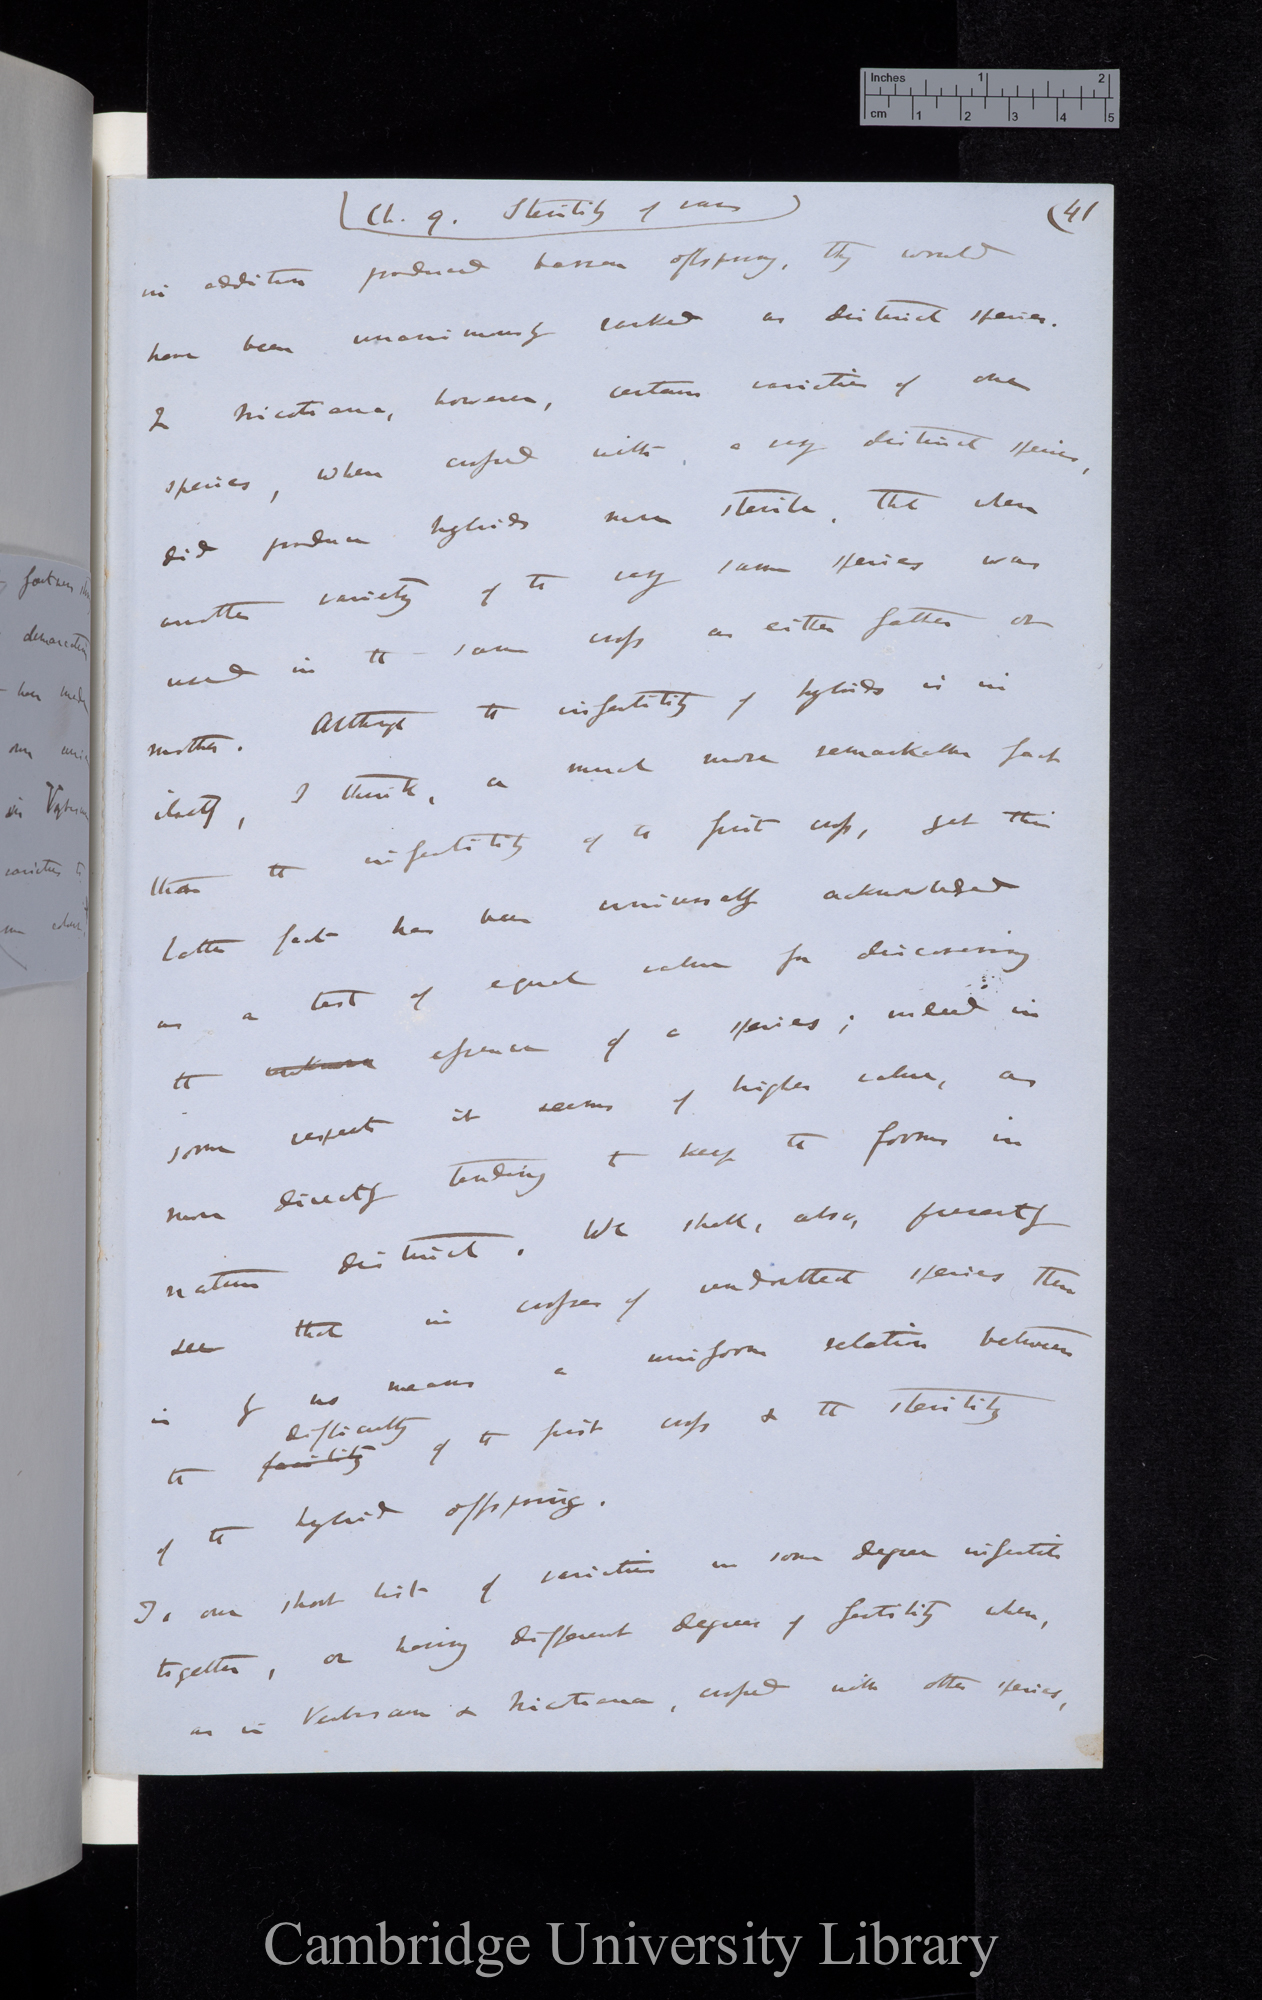 Inches 1 2
cm 1 2 3 4 5
Ch. 9. Sterility of vars
(41
in addition produced barren offspring, they would
have been unanimously ranked as distinct species.
In Nicotiana, however, certain varieties of one
species, when crossed with a very distinct species,
did produce hybrids more sterile, that when
another variety of the very same species was
used in the same cross as either father or
mother. Although the infertility of hybrids is in
itself, I think, a much more remarkable fact
than the infertility of the first cross, yet this
latter fact has been universally acknowledged
as a test of equal value for discovering
the essence of a species; indeed in
some respects it seems of higher value, as
more directly tending to keep the forms in
nature distinct. We shall, also, presently
see that in crosses of undoubted species there
is by no means a uniform relation between
difficulty
the facility of the first cross & the sterility
of the hybrid offspring.
To our short list of varieties in some degree infertile
together, or having different degrees of fertility when,
as in Verbascum & Nicotiana, crossed with other species,
demarcation
have made
in Verbascum
varieties to
Cambridge University Library